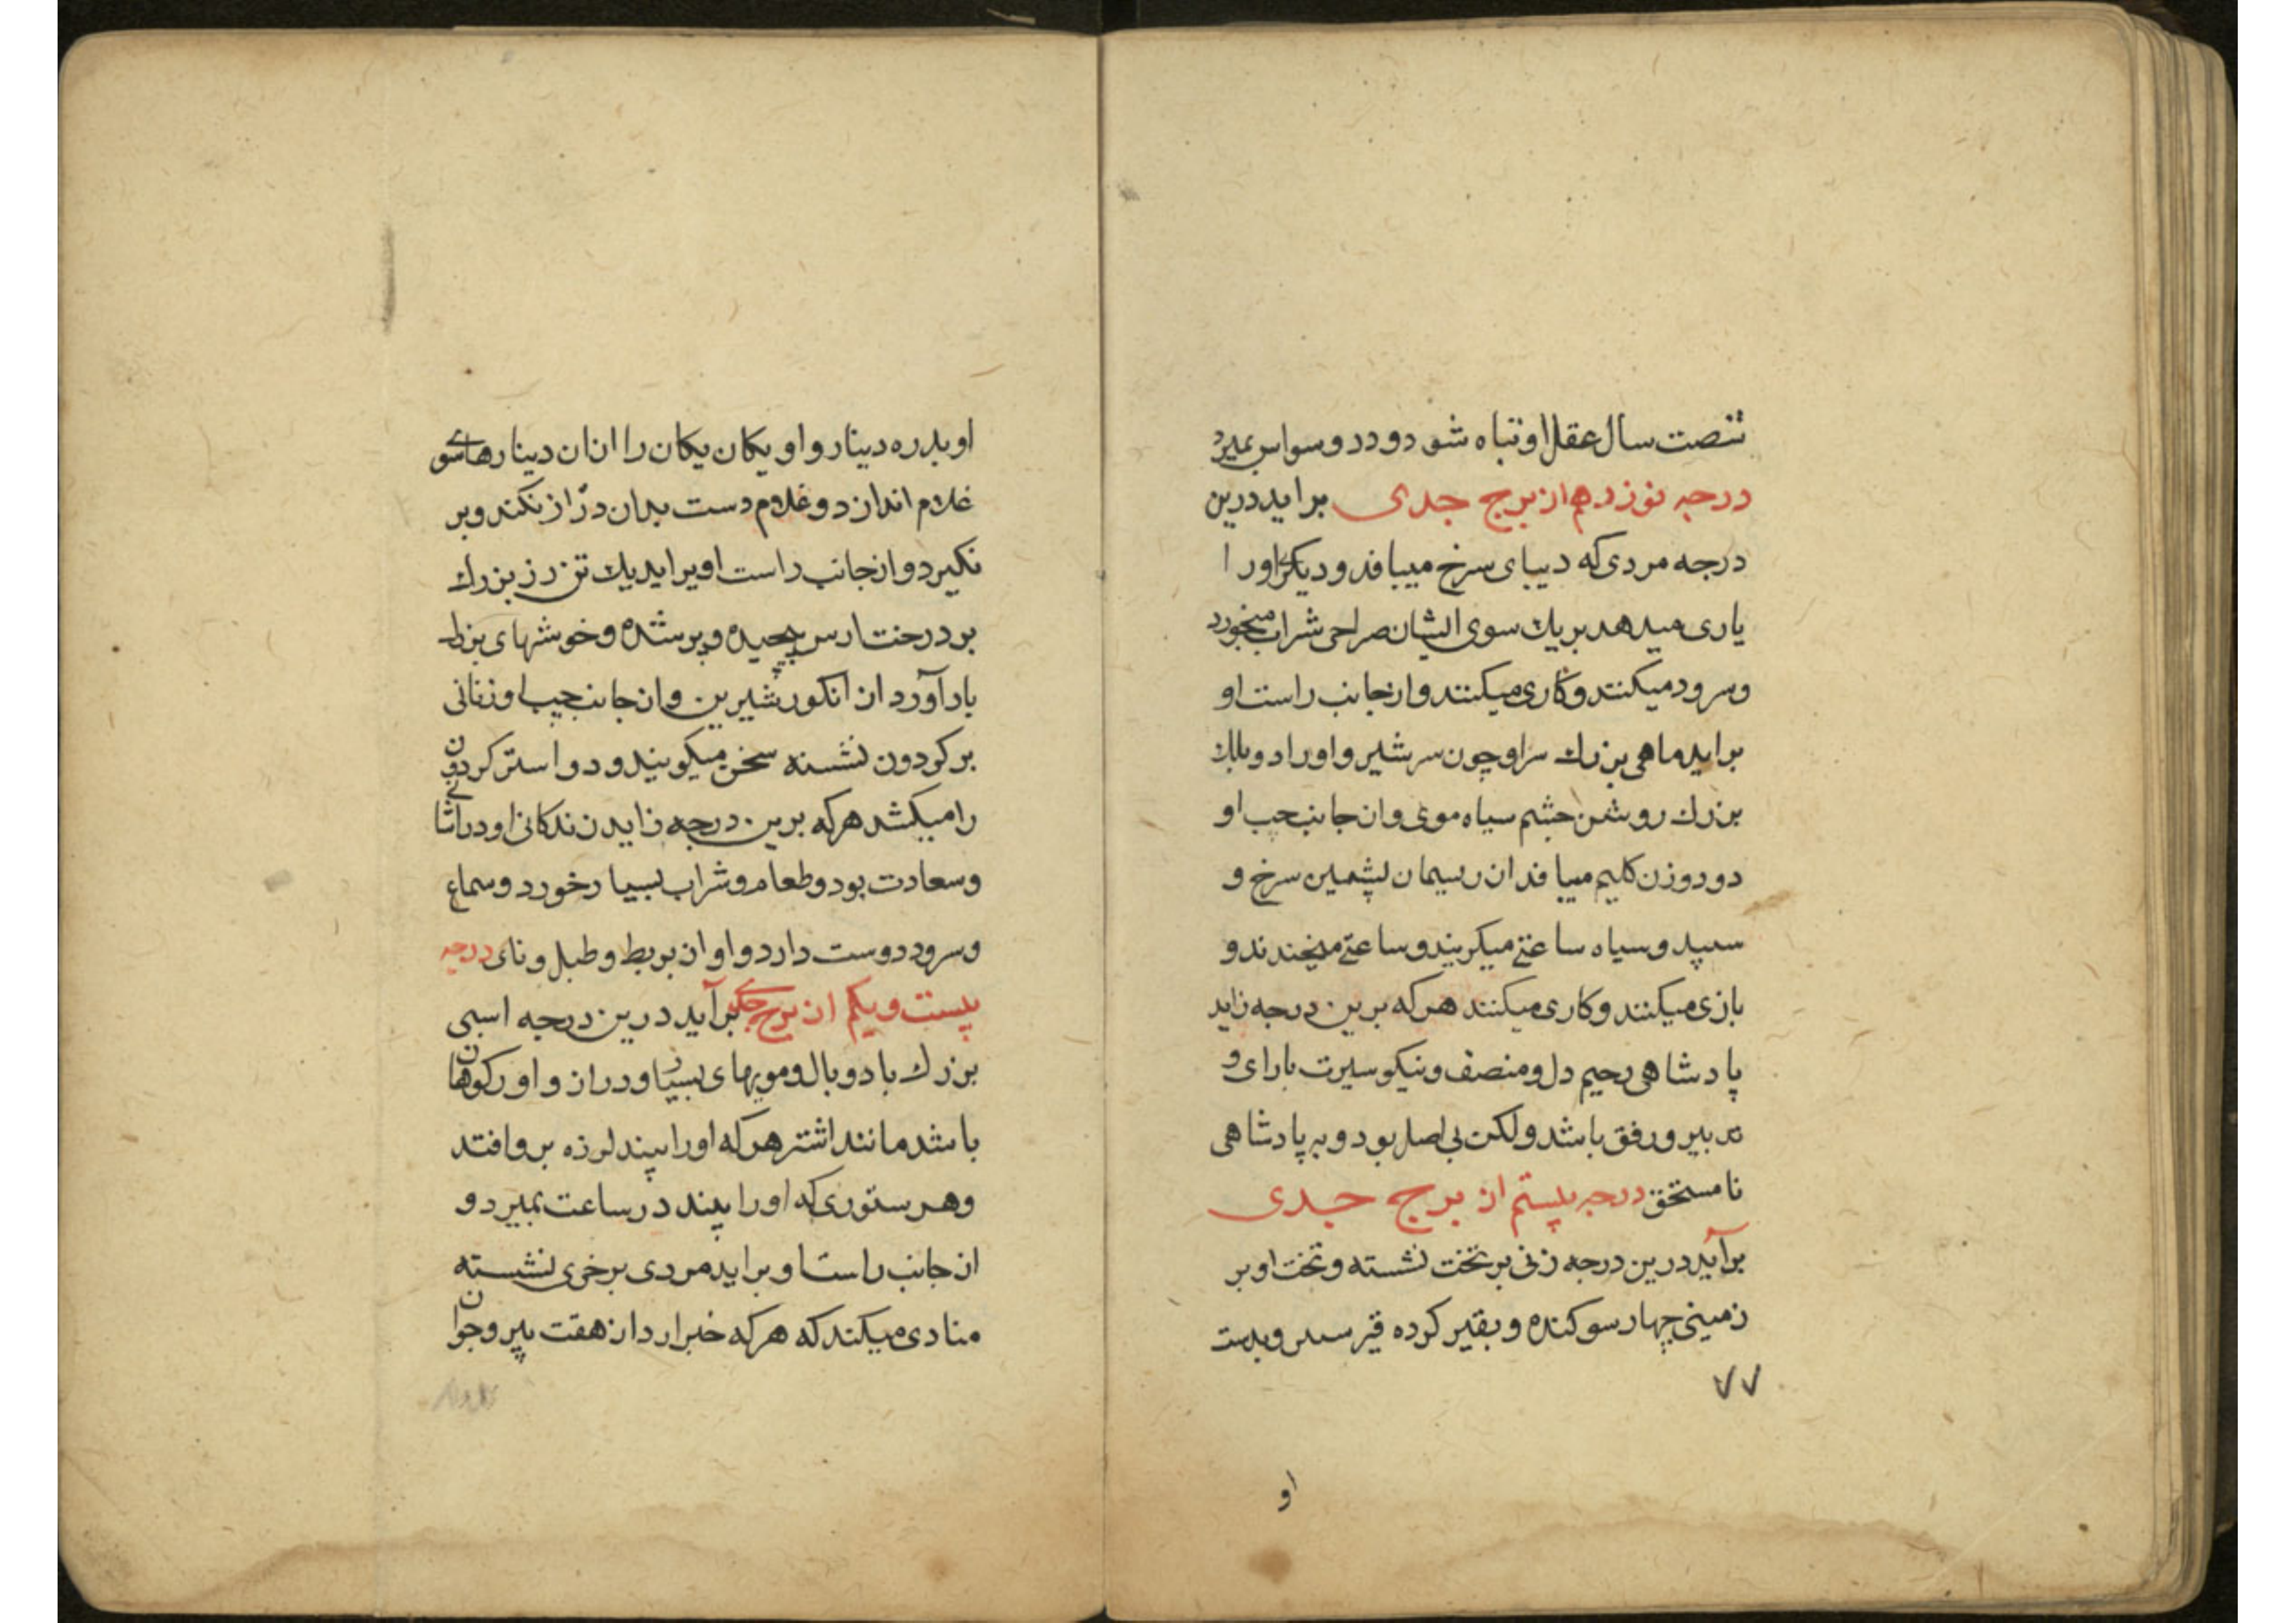 شصت سال عقل او تباه شود و در وسواس بمیرد
درجه نوزدهم از برج جدی براید درین
درجه مردی که دیبای سرخ میبافد و دیکری اورا
یاری میدهد بر یك سوی ایشان صراحی شراب میخورد
وسرود میکنند و کاری میکنند و از جانب راست او
براید ماهی بزرك سر او چون سر شیر و اورا دو بلك
بزرك روشن چشم سیاه موی و از جانب چپ او
دو دو زن کلیم میبافد از ریسمان پشمین سرخ و
سپید و سیاه ساعتی میکریند و ساعتی میخندند و
بازی میکنند و کاری میکنند هرکه برین درجه زاید
پادشاهی رحیم دل و منصف و نیکو سیرت با رای و
تدبیر و رفق باشد ولکن بی اصل بود و به پادشاهی
نا مستحق درجه بیستم از برج جدی
برآید درین درجه زنی بر تخت نشسته و تخت او بر
زمینی چهار سو کنده و بقیر کرده قیر و بدست
۷۷
او
او بدره دینار و او یکان یکان را از ان دینارها سوی
غلام اندازد و غلام دست بدان دراز نکند و بر
نکیرد و از جانب راست او براید یك تن رز بزرك
بر درخت پیچیده و بر شده و خوشهای بزرك
بار آورد از انکور شیرین و از جانب چپ او زنانی
بر کردون نشسته سخن میکویند و دو استر کردون
را میکشد هرکه برین درجه زاید زندکانی او در
وسعادت بود و طعام و شراب بسیار خورد و سماع
وسرود دوست دارد و اواز بربط و طبل و نای درجه
بیست ویکم از برج جدی برآید درین درجه اسبی
بزرك با دو بال و مویهای بسیار و دراز و او را کوهان
باشد مانند اشتر هرکه اورا بیند لرزه بر و افتد
وهر ستوری که اورا بیند در ساعت بمیرد و
از جانب راست او براید مردی بر خری نشسته
منادی میکند که هرکه خبر ارد از هفت پیر و جوان